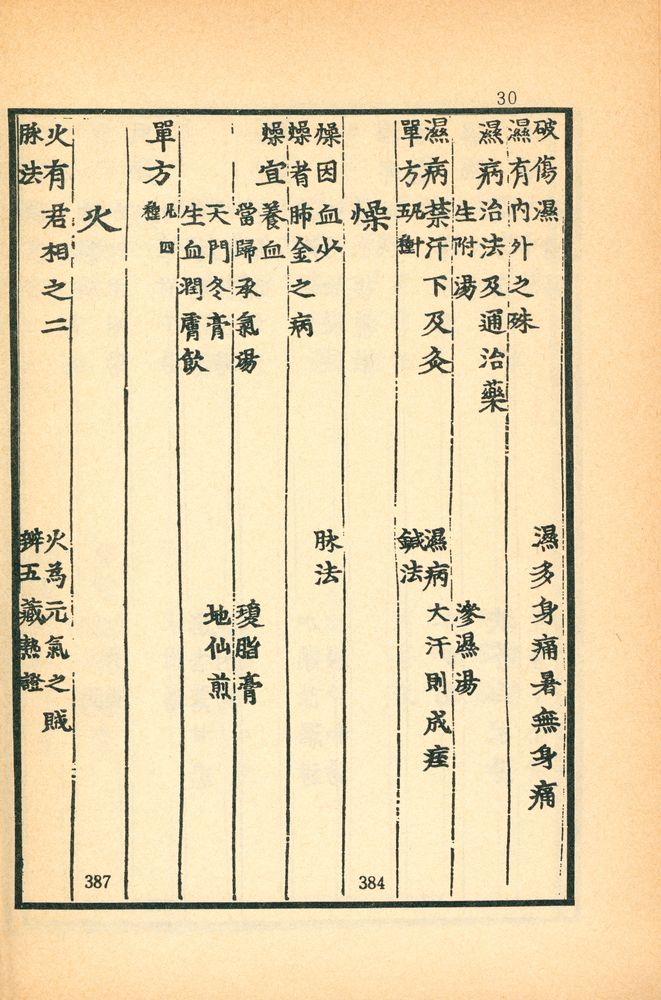 30
破傷濕
濕多身痛暑無身痛
濕有內外之殊
濕病治法及通治藥
生附湯
滲濕湯
濕病禁汗下及灸
濕病大汗則成痓
單方凡十五種
鍼法
燥
384
燥因血少
脉法
燥者肺金之病
燥宜養血
當歸承氣湯
瓊脂膏
天門冬膏
地仙煎
生血潤膚飮
單方凡四種
火
387
火有君相之二
火為元氣之賊
脉法
辨五藏熱證